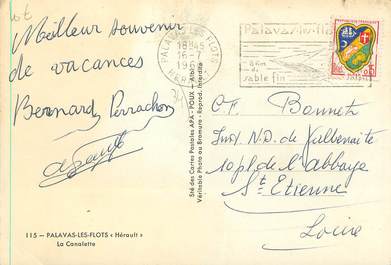 Meilleur souvenir
de vacances
Bernard Perrachon
115 — PALAVAS-LES-FLOTS « Hérault »
La Canalette
Sté des Cartes Postales APA - POUX - Albi
Véritable Photo au Bromure - Reprod. Interdite
PALAVAS LES FLOTS
18H45
16-7
HERAULT
Palavas-les-flots
8 Km
de
sable fin
REPUBLIQUE FRANÇAISE
Bonnet
Inst N.D. de Valbenoite
10 pl de l'abbaye
St Etienne
Loire